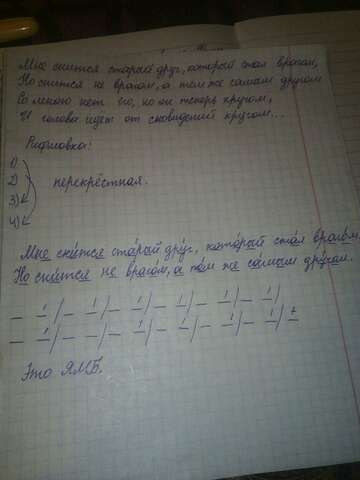 Мне снится старый друг, который стал врагом,
Но снится не врагом, а тем же самым другом
Со мною нет его, но он теперь кругом,
И голова идет от сновидений кругом...
Рифмовка:
1)
2) перекрёстная.
3)
4)
Мне сни́тся ста́рый дру́г, кото́рый ста́л враго́м,
Но сни́тся не враго́м, а те́м же са́мым дру́гом..
Это ЯМБ.